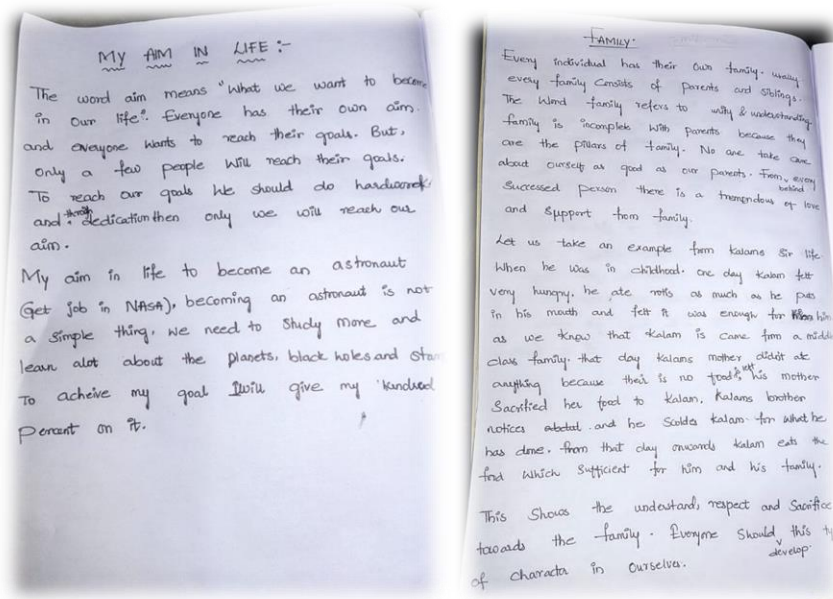 MY AIM IN LIFE :-
The word aim means "What we want to become
in our life". Everyone has their own aim.
and everyone wants to reach their goals. But,
only a few people will reach their goals.
To reach our goals we should do hardwork
and through dedication then only we will reach our
aim.
My aim in life to become an astronaut
(Get job in NASA), becoming an astronaut is not
a simple thing. we need to study more and
learn alot about the planets, black holes and stars
To acheive my goal I will give my hundred
percent on it.
FAMILY.
Every individual has their own family. usually
every family consists of parents and siblings.
The word family refers to unity & understanding
family is incomplete with parents because they
are the pillars of family. No one take care
about ourself as good as our parents. From behind every
successed person there is a tremendous of love
and support from family.
Let us take an example from kalams sir life
When he was in childhood. one day kalam felt
very hungry. he ate rotis as much as he puts
in his mouth and felt it was enough for him
as we know that kalam is came from a middle
class family. that day kalams mother didn't ate
anything because their is no food, his mother
Sacrified her food to kalam. kalams brother
notices and he scolds kalam for what he
has done. from that day onwards kalam eats the
which sufficient for him and his family.
This shows the understand, respect and Sacrifice
towards the family. Everyone should develop this
of character in ourselves.